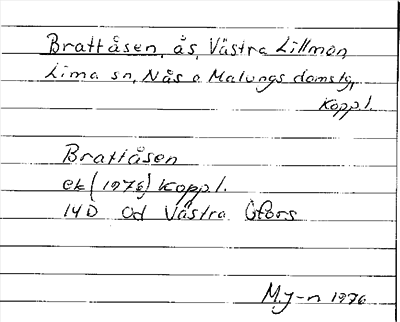 Brattåsen, ås, Västra Lillmon,
Lima sn, Nås o Malungs domsg,
Kopp.l.
Brattåsen
ek (1976) Kopp.l.
14D 0d Västra Ofors
M. J-n 1976